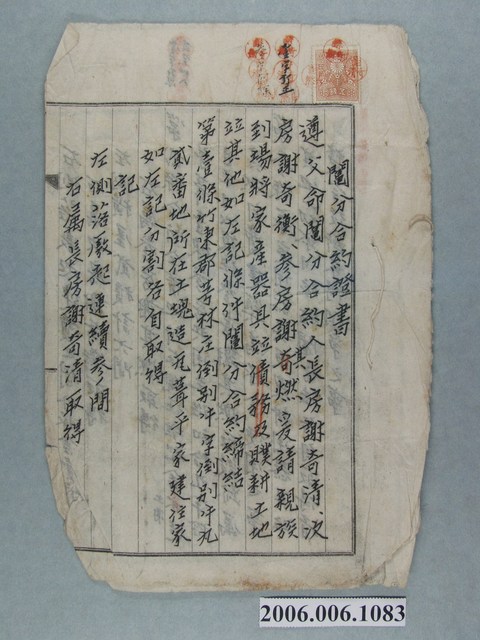 鬮分合約證書
遵父命鬮分合約人長房謝奇清次
房謝奇衡參房謝奇燃爰請親族
到場將家產器具竝債務及贌耕土地
竝其他如左記條件鬮分合約締結
第壹條竹東郡芎林庄倒別牛字倒別牛九
貳番地所在土塊造瓦葺平家建住家
如左記分割各自取得
記
左側落廒起連續參間
右屬長房謝奇清取得
2006.006.1083